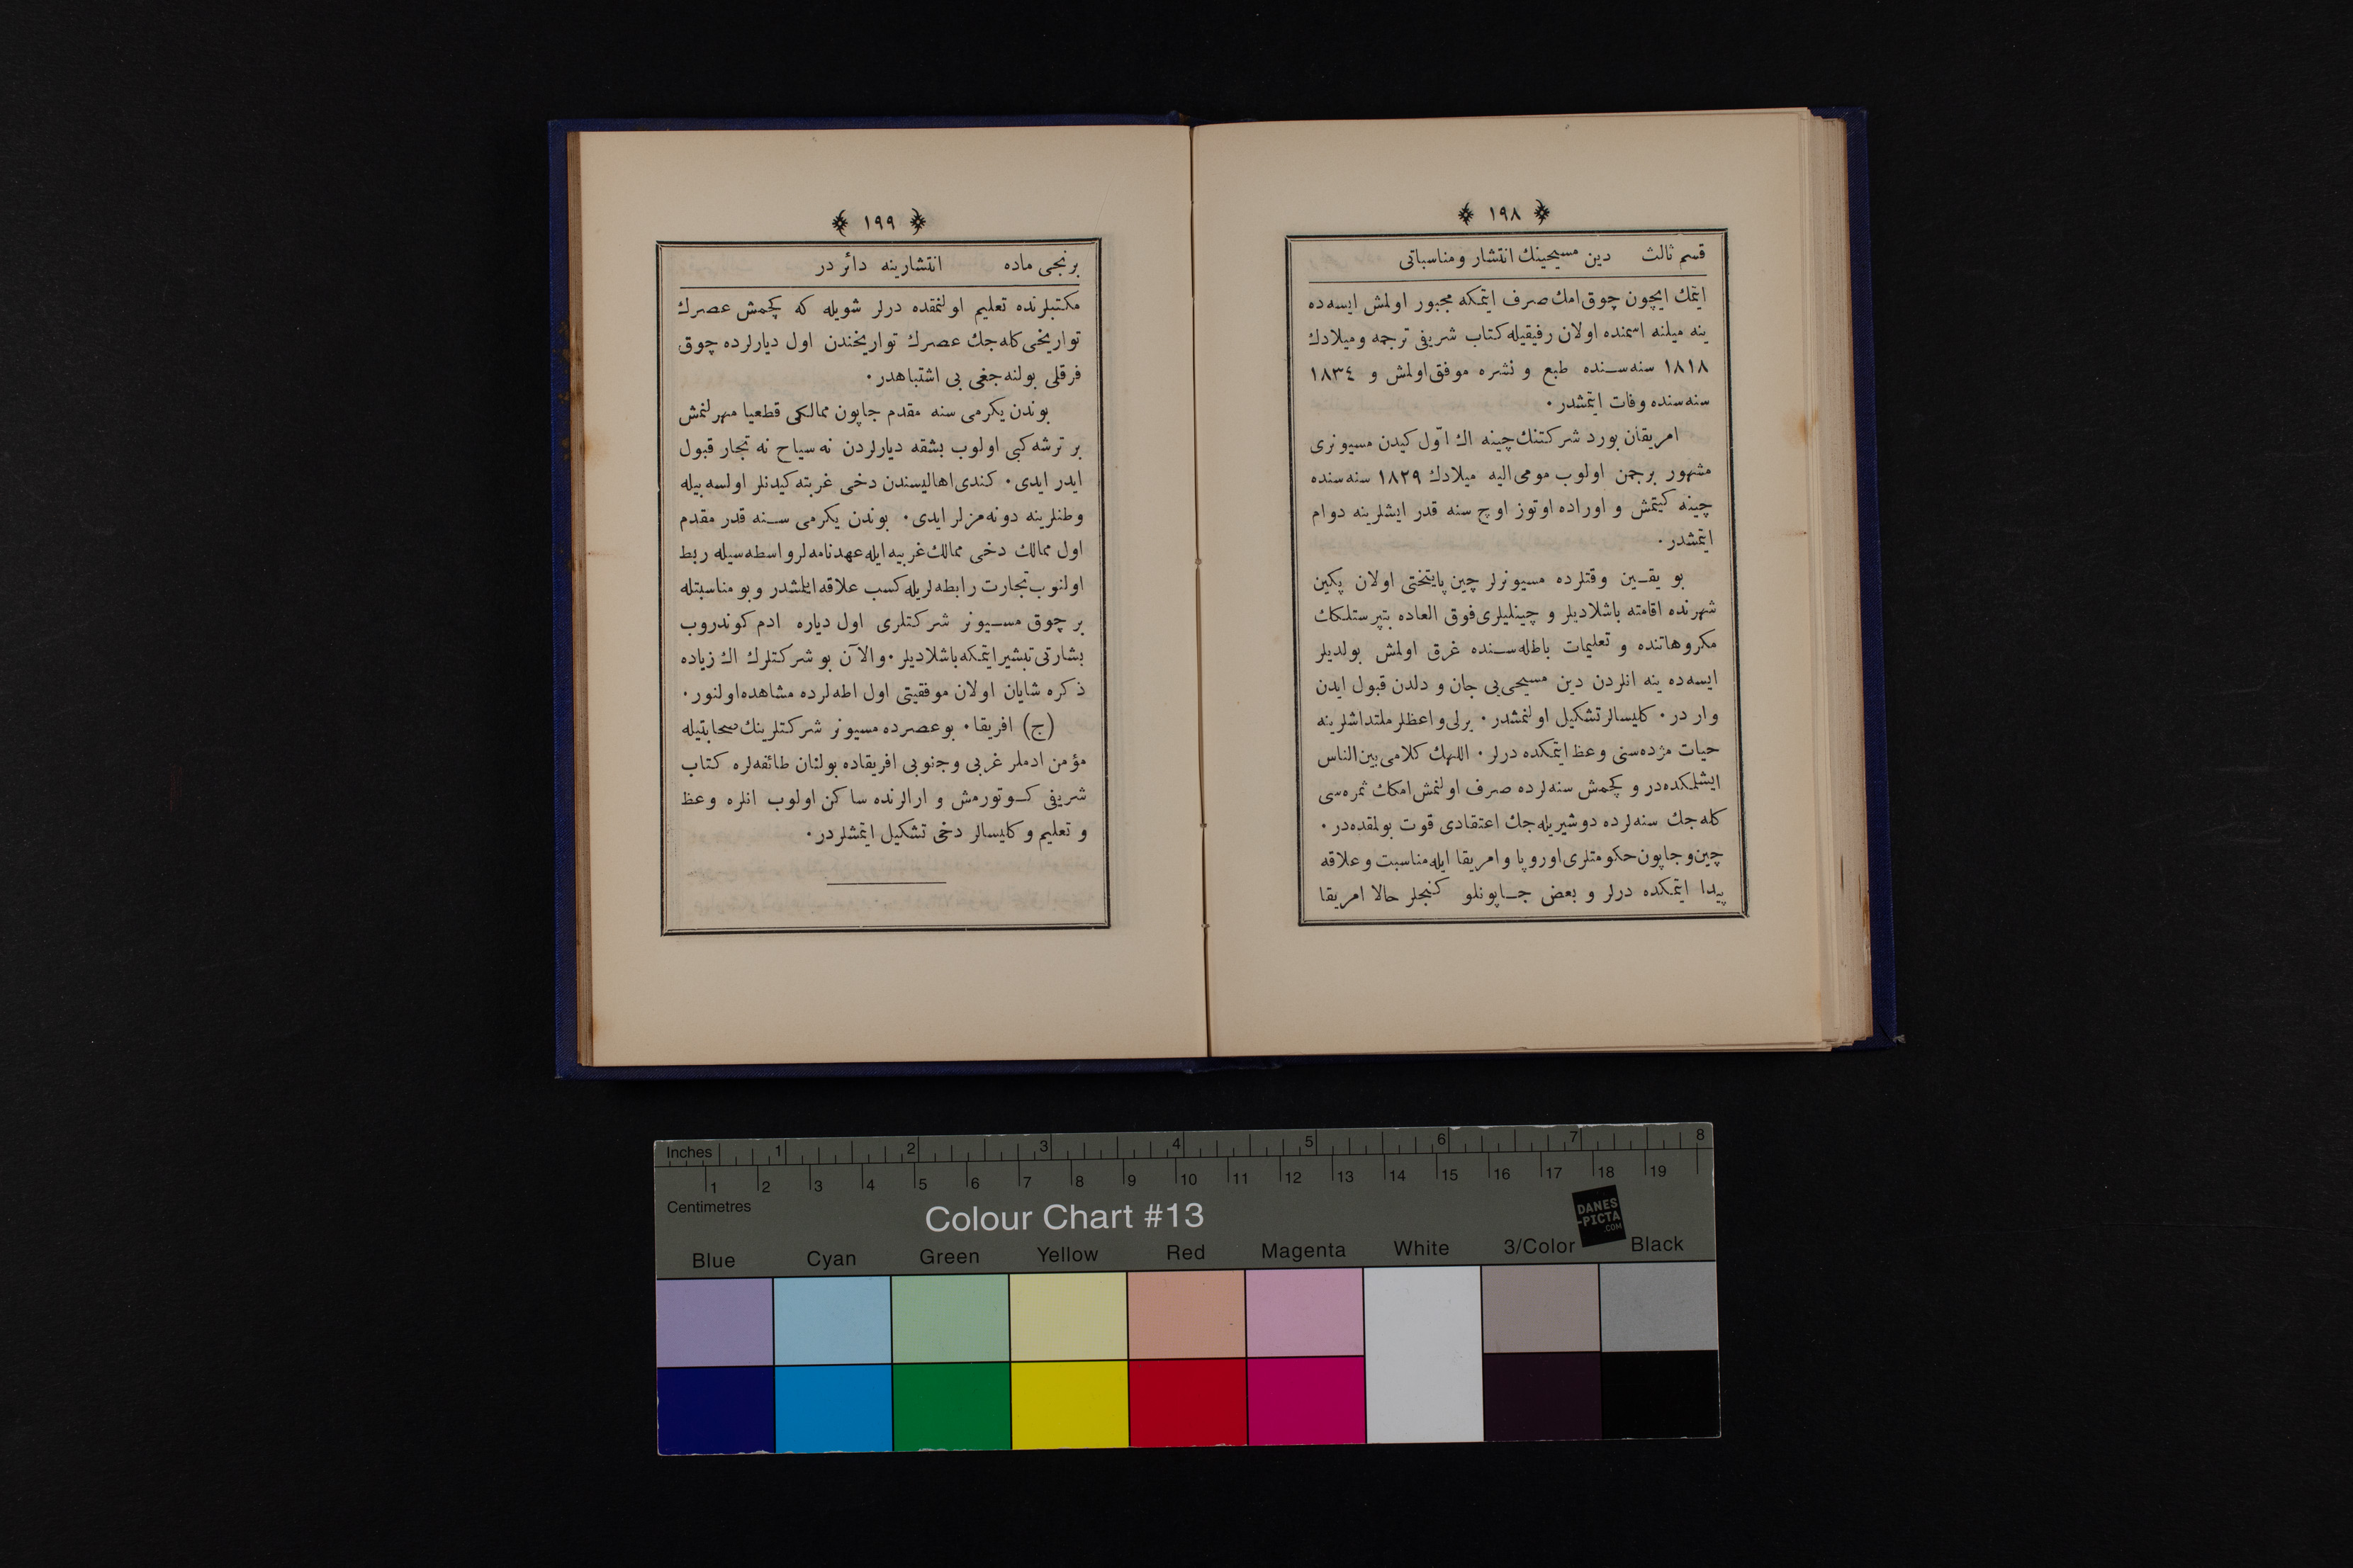 ﴾ ١٩٨ ﴿
قسم ثالث دين مسيحينك انتشار و مناسباتى
ايتمك ايچون چوق امك صرف ايتمكه مجبور اولمش ايسه ده
ينه ميلنه اسمنده اولان رفيقيله كتاب شريفى ترجمه وميلادك
١٨١٨ سنه سنده طبع و نشره موفق اولمش و ١٨٣٤
سنه سنده وفات ايتمشدر ٠
امريقان بورد شركتنك چينه اك اوّل كيدن مسيونرى
مشهور برجمن اولوب مومى اليه ميلادك ١٨٢٩ سنه سنده
چينه كيتمش و اوراده اوتوز اوچ سنه قدر ايشلرينه دوام
ايتمشدر ٠
بو يقين وقتلرده مسيونرلر چين پايتختى اولان پكين
شهرنده اقامته باشلاديلر و چينليلرى فوق العاده بتپرستلكك
مكروهاتنده و تعليمات باطله سنده غرق اولمش بولديلر
ايسه ده ينه انلردن دين مسيحى يى جان و دلدن قبول ايدن
وار در ٠ كليسالر تشكيل اولنمشدر ٠ يرلى واعظلر ملتداشلرينه
حيات مژده سنى وعظ ايتمكده درلر ٠ اللهك كلامى بين الناس
ايشلمكده در و كچمش سنه لرده صرف اولنمش امكك ثمره سى
كله جك سنه لرده دوشيريله جك اعتقادى قوت بولمقده در ٠
چين و جاپون حكومتلرى اوروپا و امريقا ايله مناسبت و علاقه
پيدا ايتمكده درلر و بعض جاپونلو كنجلر حالا امريقا
﴾ ١٩٩ ﴿
برنجى ماده انتشارينه دائر در
مكتبلرنده تعليم اولنمقده درلر شويله كه كچمش عصرك
تواريخى كله جك عصرك تواريخندن اول ديارلرده چوق
فرقلى بولنه جغى بى اشتباهدر ٠
بوندن يكرمى سنه مقدم جاپون ممالكى قطعيا مهرلنمش
بر ترشه كبى اولوب بشقه ديارلردن نه سياح نه تجار قبول
ايدر ايدى ٠ كندى اهاليسندن دخى غربته كيدنلر اولسه بيله
وطنلرينه دونه مزلر ايدى ٠ بوندن يكرمى سنه قدر مقدم
اول ممالك دخى ممالك غربيه ايله عهدنامه لر واسطه سيله ربط
اولنوب تجارت رابطه لريله كسب علاقه ايلمشدر و بو مناسبتله
بر چوق مسيونر شركتلرى اول دياره ادم كوندروب
بشارتى تبشير ايتمكه باشلاديلر ٠ والآن بو شركتلرك اك زياده
ذكره شايان اولان موفقيتى اول اطه لرده مشاهده اولنور ٠
(ج) افريقا ٠ بو عصرده مسيونر شركتلرينك صحابتيله
مؤمن ادملر غربى وجنوبى افريقاده بولنان طائفه لره كتاب
شريفى كوتورمش و ارالرنده ساكن اولوب انلره وعظ
و تعليم و كليسالر دخى تشكيل ايتمشلردر ٠
Inches 1 2 3 4 5 6 7 8
1 2 3 4 5 6 7 8 9 10 11 12 13 14 15 16 17 18 19
Centimetres
Colour Chart #13
DANES
-PICTA
.COM
Blue Cyan Green Yellow Red Magenta White 3/Color Black